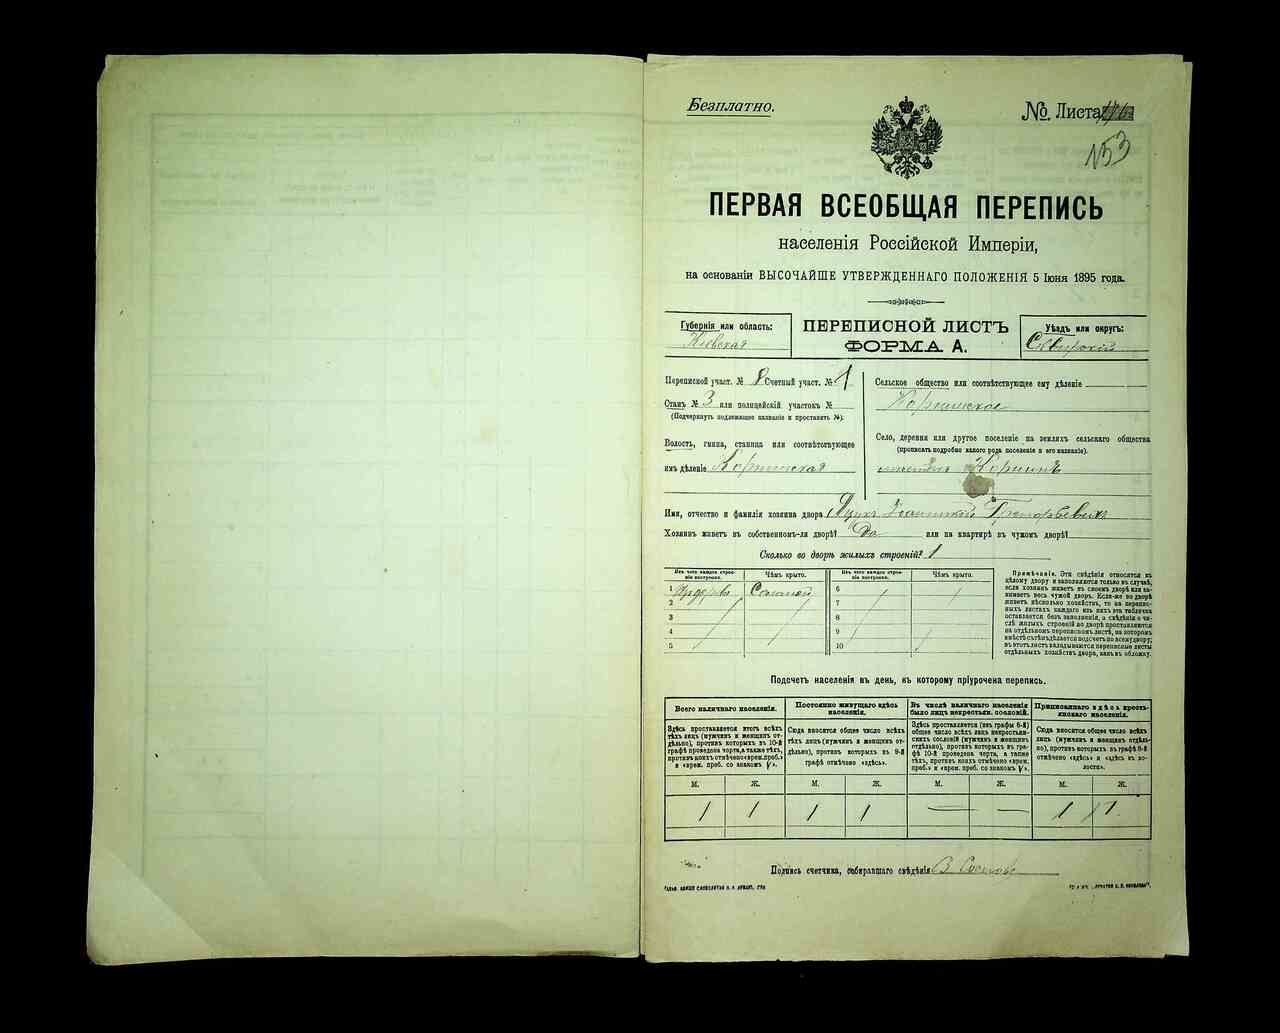 Безплатно.
№ Листа
153
ПЕРВАЯ ВСЕОБЩАЯ ПЕРЕПИСЬ
населенія Россійской Имперіи,
на основаніи ВЫСОЧАЙШЕ УТВЕРЖДЕННАГО ПОЛОЖЕНІЯ 5 Іюня 1895 года.
Губернія или область:
Кіевская
ПЕРЕПИСНОЙ ЛИСТЪ
ФОРМА А.
Уѣздъ или округъ:
Сквирскій
Переписной участ. № 8 Счетный участ. № 1
Станъ № 3 или полицейскій участокъ №
(Подчеркнуть подлежащее названіе и проставить №).
Волость, гмина, станица или соотвѣтствующее
имъ дѣленіе Корнинская
Сельское общество или соотвѣтствующее ему дѣленіе
Корнинское
Село, деревня или другое поселеніе на земляхъ сельскаго общества
(прописать подробно какого рода поселеніе и его названіе).
мѣстечко Корнинъ
Имя, отчество и фамилія хозяина двора Григорьевичъ
Хозяинъ живетъ въ собственномъ-ли дворѣ? Да или на квартирѣ въ чужомъ дворѣ?
Сколько во дворѣ жилыхъ строеній? 1
Изъ чего каждое строеніе построено.
Чѣмъ крыто.
Изъ чего каждое строеніе построено.
Чѣмъ крыто.
1 Соломой 6
2 7
3 8
4 9
5 10
Примѣчаніе. Эти свѣдѣнія относятся къ
цѣлому двору и заполняются только въ случаѣ,
если хозяинъ живетъ въ своемъ дворѣ или занимаетъ
весь чужой дворъ. Если-же во дворѣ
живетъ нѣсколько хозяйствъ, то на переписныхъ
листахъ каждаго изъ нихъ эта табличка
оставляется безъ заполненія, а свѣдѣнія о числѣ
жилыхъ строеній во дворѣ проставляются
на отдѣльномъ переписномъ листѣ, на которомъ
вмѣстѣ съ тѣмъ дѣлается подсчетъ по всему двору;
въ этотъ листъ вкладываются переписные листы
отдѣльныхъ хозяйствъ двора, какъ въ обложку.
Подсчетъ населенія въ день, въ которому пріурочена перепись.
Всего наличнаго населенія.
Постоянно живущаго здѣсь населенія.
Въ числѣ наличнаго населенія было лицъ некрестьян. сословій.
Приписаннаго здѣсь крестьянскаго населенія.
Здѣсь проставляется итогъ всѣхъ
тѣхъ лицъ (мужчинъ и женщинъ отдѣльно),
противъ которыхъ въ 10-й
графѣ проведена черта, а также тѣхъ,
противъ коихъ отмѣчено «врем. преб.»
и «врем. преб. со знакомъ V».
Сюда вносится общее число всѣхъ
тѣхъ лицъ (мужчинъ и женщинъ отдѣльно),
противъ которыхъ въ 9-й
графѣ отмѣчено «здѣсь».
Здѣсь проставляется (изъ графы 6-й)
общее число всѣхъ лицъ некрестьянскихъ
сословій (мужчинъ и женщинъ
отдѣльно), противъ которыхъ въ графѣ
10-й проведена черта, а также
тѣхъ, противъ коихъ отмѣчено «врем.
преб.» и «врем. преб. со знакомъ V».
Сюда вносится общее число всѣхъ
лицъ (мужчинъ и женщинъ отдѣльно),
противъ которыхъ въ графѣ 8-й
отмѣчено «здѣсь» и «здѣсь въ волости».
М. Ж. М. Ж. М. Ж. М. Ж.
1 1 1 1 — — 1 1
Подпись счетчика, собиравшаго свѣдѣнія В.